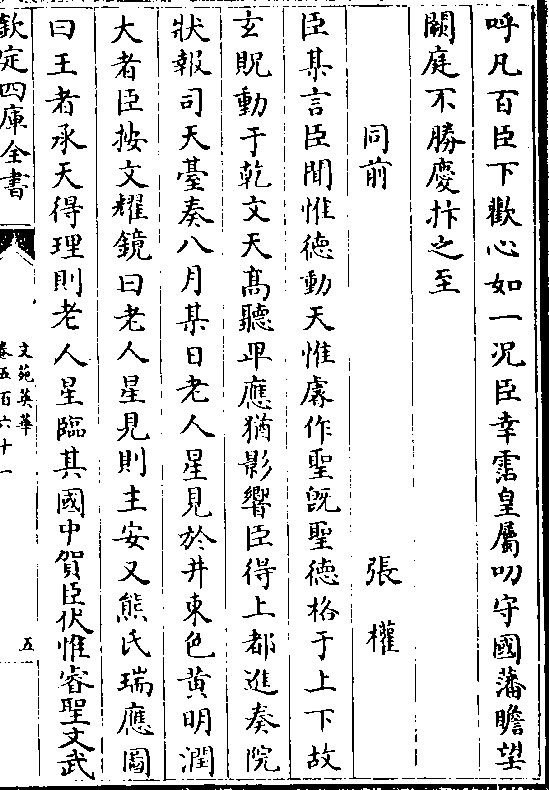 呼凡百臣下歡心如一况臣幸霑皇屬叨守國藩瞻望
闕庭不勝慶抃之至
同前 張權
臣某言臣聞惟徳動天惟睿作聖旣聖徳格于上下故
玄貺動于乾文天髙聽卑應猶影響臣得上都進奏院
狀報司天臺奏八月某日老人星見於井東色黄明潤
大者臣按文耀鏡曰老人星見則主安又熊氏瑞應圖
曰王者承天得理則老人星臨其國中賀臣伏惟睿聖文武
欽定四庫全書
文苑英華
卷五百六十一
五